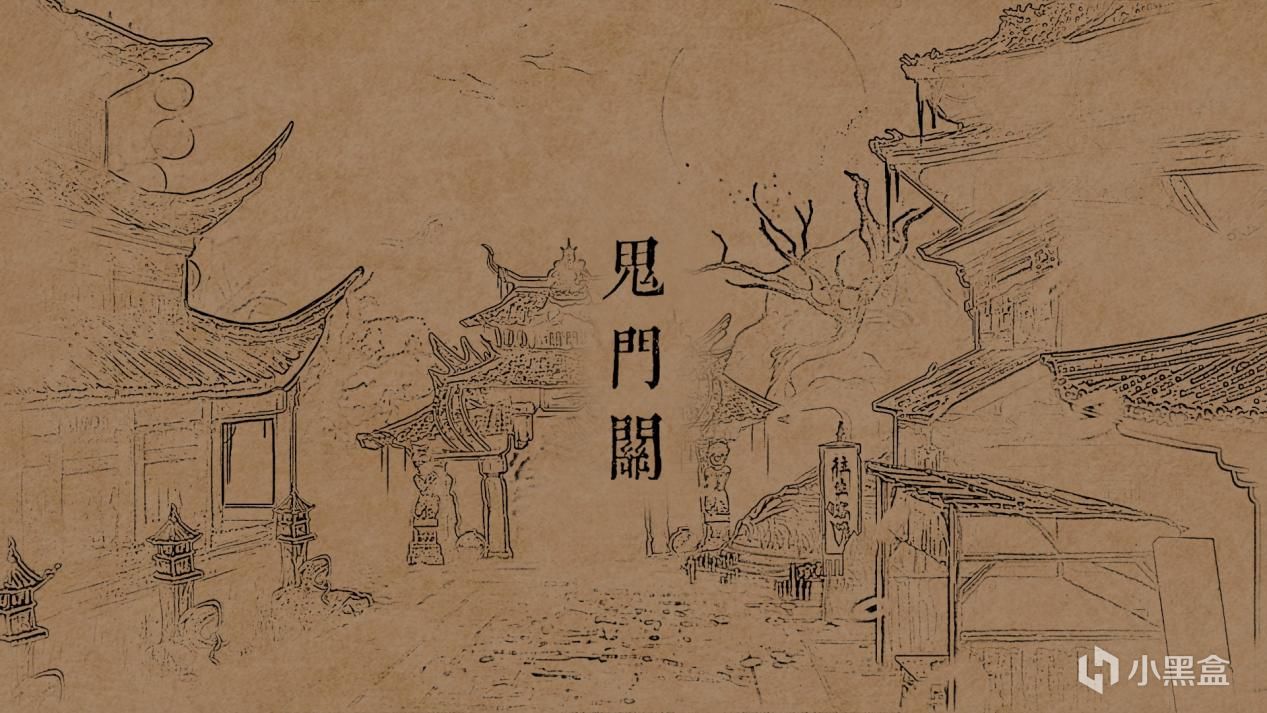 鬼門關
往生
小黑盒